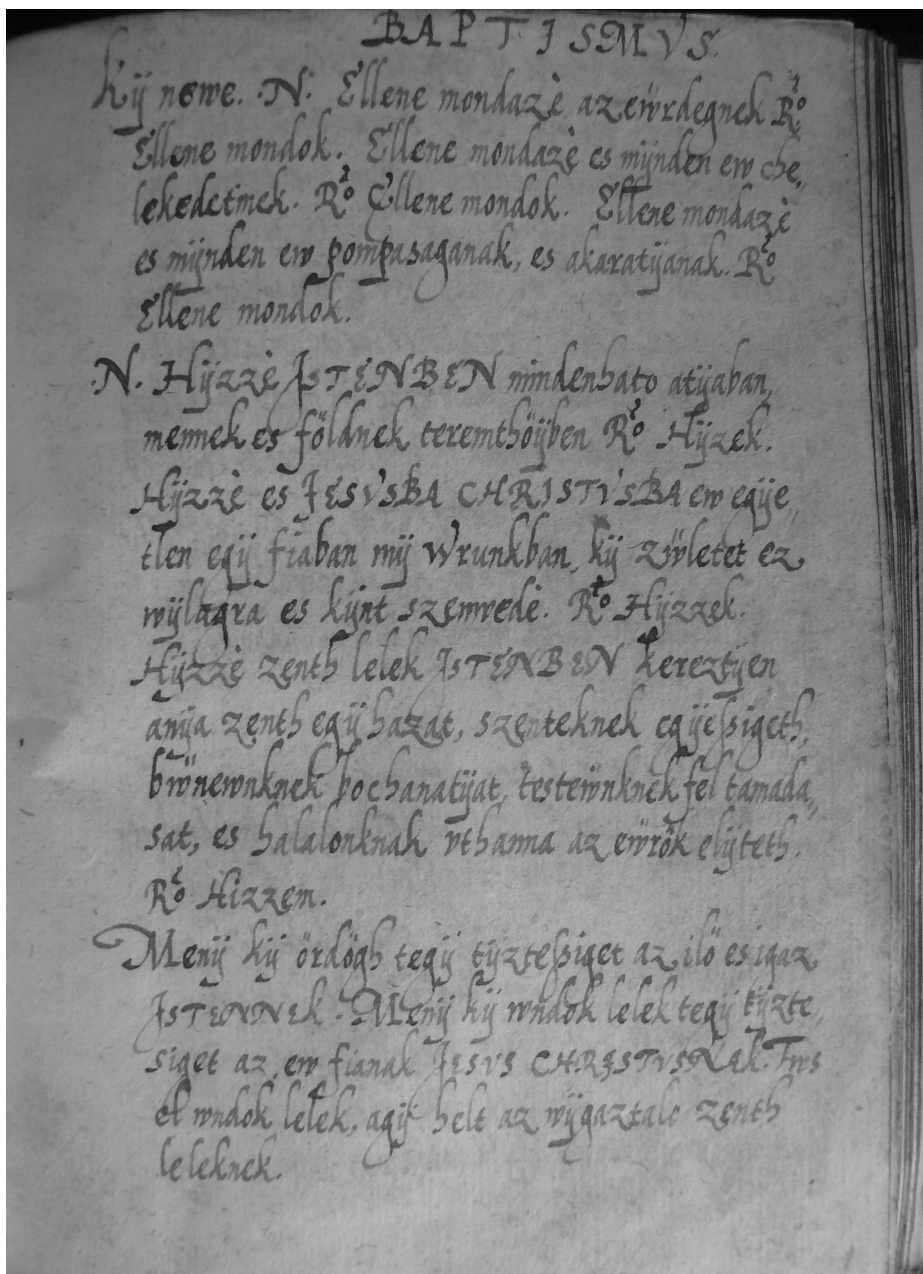 BAPTISMVS
Kÿ newe. .N. Ellene mondazè az ewrdegnek Rº
Ellene mondok. Ellene mondazè es mÿnden ew che,
lekedetinek. Rº Ellene mondok. Ellene mondazè
es mÿnden ew pompasaganak, es akaratÿanak. Rº
Ellene mondok.
.N. Hÿzzè JSTENBEN mindenhato atÿaban,
mennek es földnek teremthöÿben Rº Hÿzek.
Hÿzzè es JESVSBA CHRISTVSBA ew egÿe,
tlen egÿ fiaban mÿ Wrunkban, kÿ zẅletet ez
wÿlagra es kÿnt szenvedè. Rº Hÿzzek.
Hÿzzè zenth lelek JSTENBEN kereztÿen
anÿa zenth egÿ hazat, szenteknek egÿeſsigeth,
bẅnewnknek bochanatÿat, testeẅnknek fel tamada,,
sat, es halalonknak vthanna az eẅrök elÿteth.
Rº Hizzem.
Menÿ kÿ ördögh tegÿ tÿzteſsiget az ilö es igaz
JSTENNEK. Menÿ kÿ wndok lelek tegÿ tÿzte,
siget az ew fianak JESVS CHRISTVSNak. Fws
el wndok lelek, agÿ helt az wÿgaztalo zenth
leleknek.